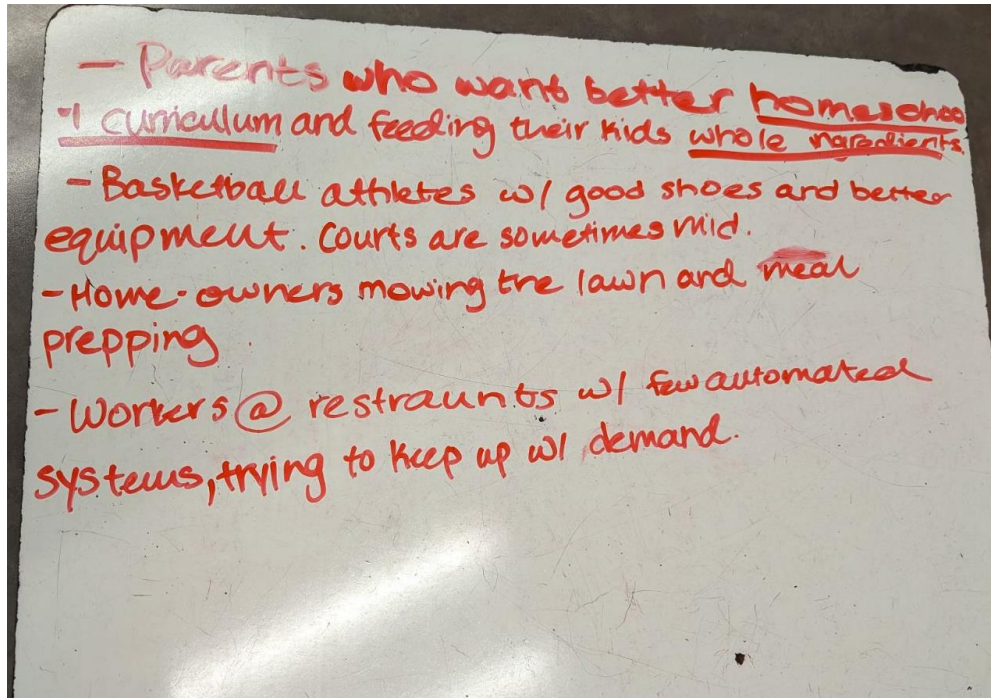 - Parents who want better homeschoo
-l curriculum and feeding their kids whole ingredients.
- Basketball athletes w/ good shoes and better
equipment. Courts are sometimes mid.
- Home-owners mowing the lawn and meal
prepping.
- Workers @ restraunts w/ few automated
systems, trying to keep up w/ demand.